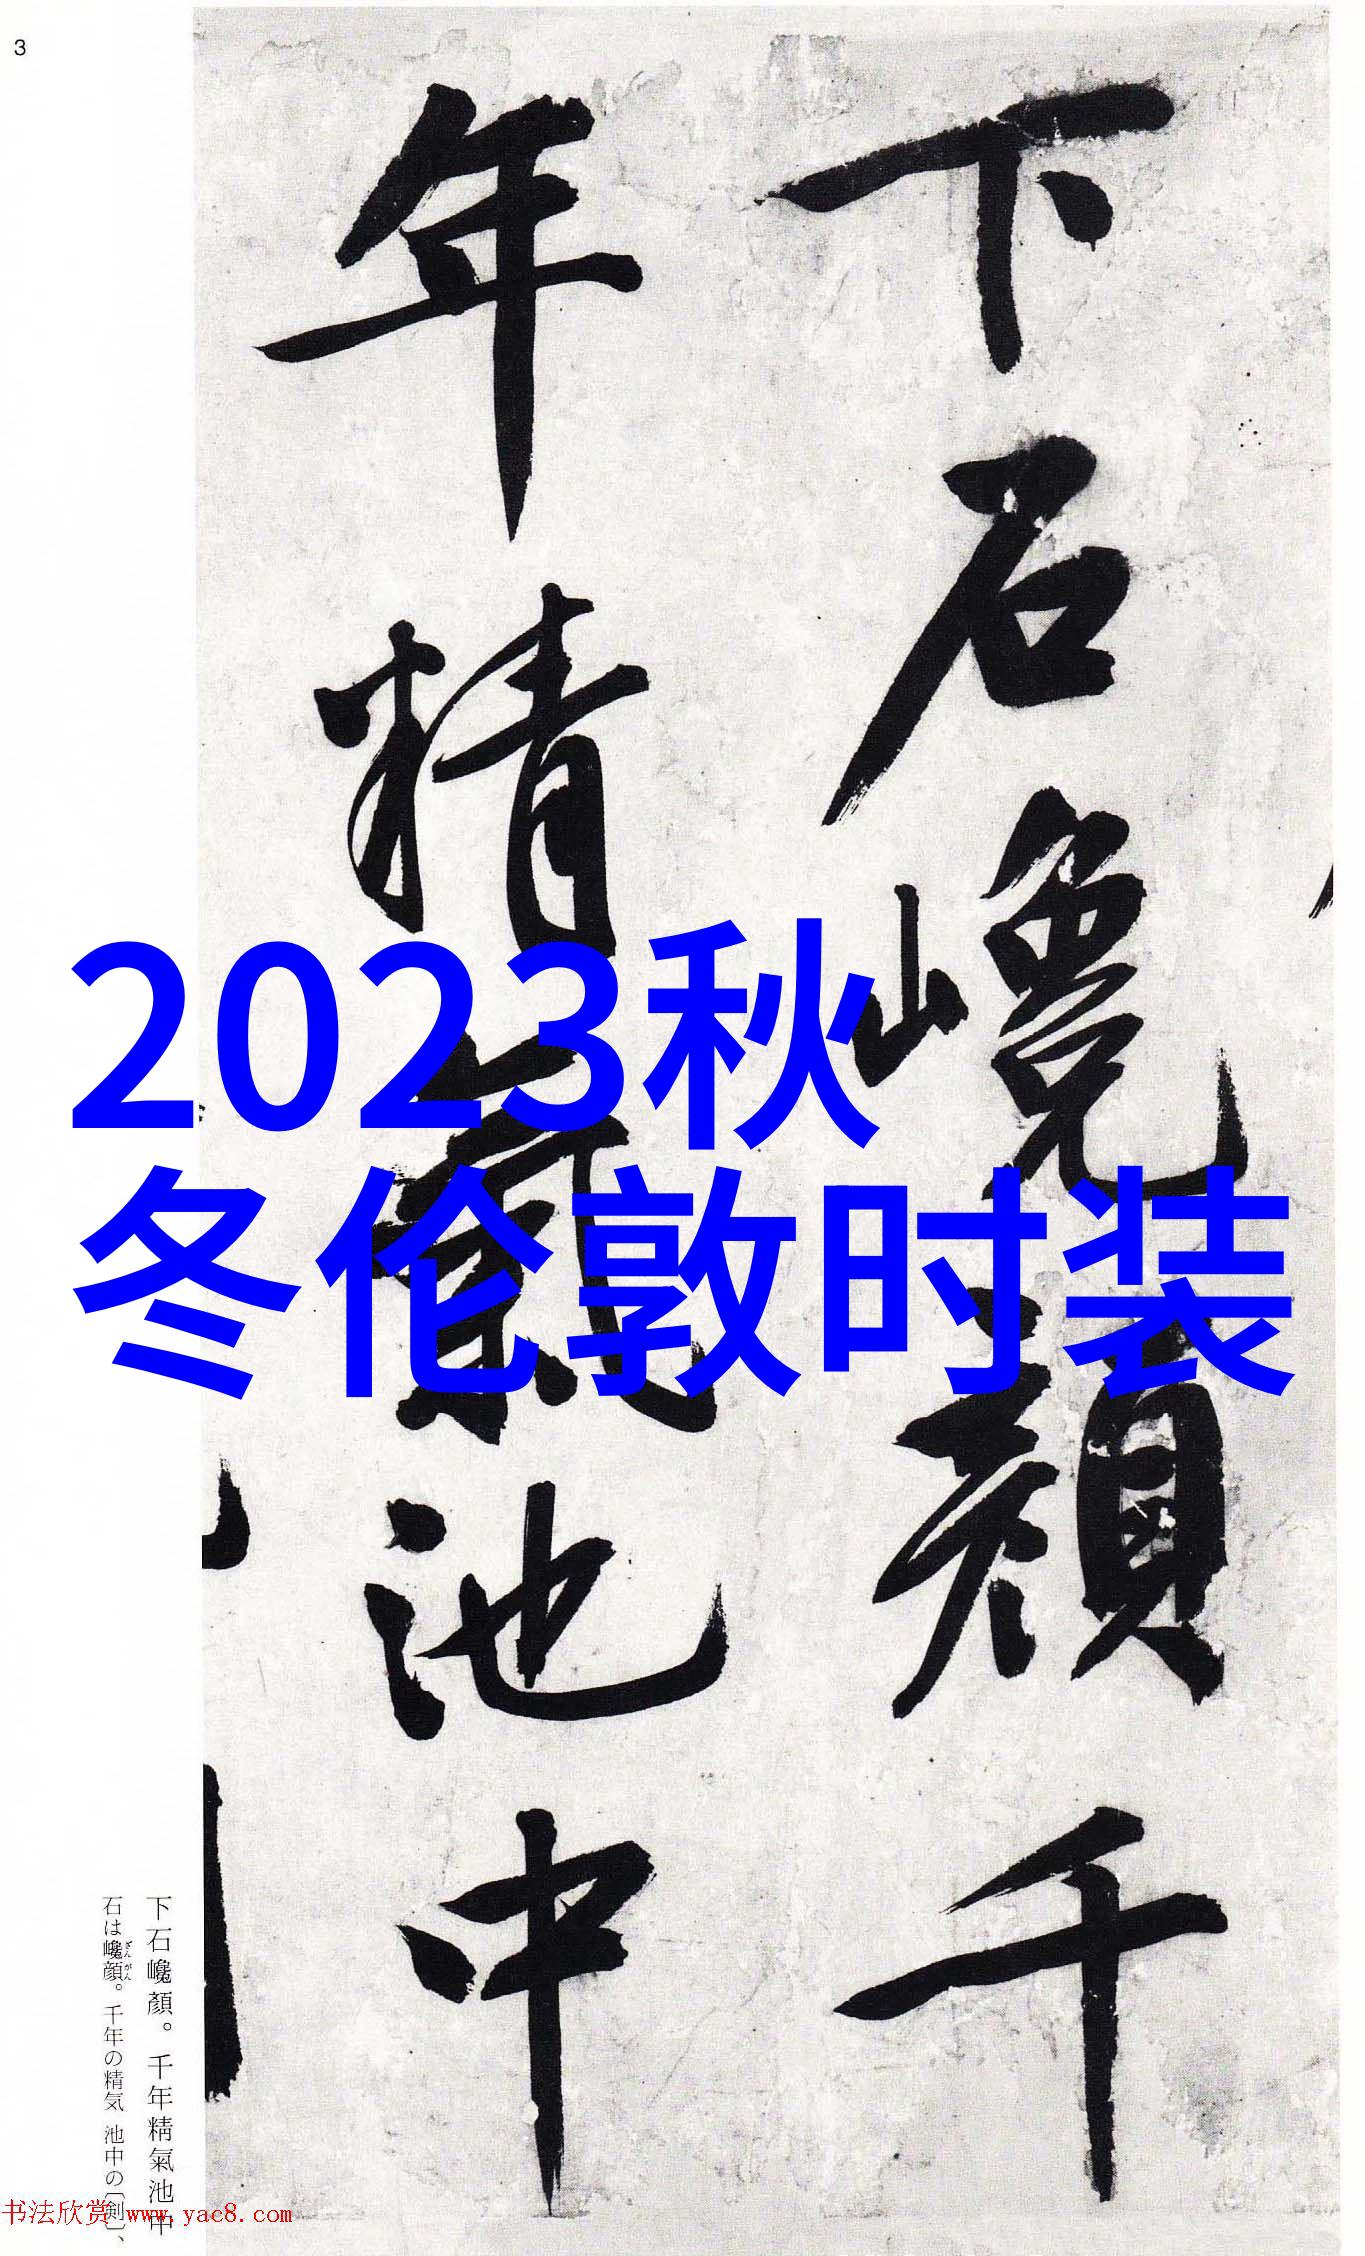 3
下石巉顏千
年精氣池中
2023秋
冬伦敦时装
下石巉顏。千年精氣池中
石は巉顔。千年の精気 池中の〔剣〕、
ざん がん
书法欣赏 www.yac8.com